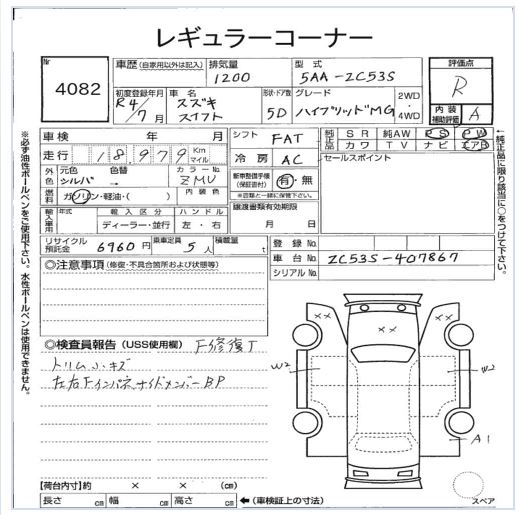 レギュラーコーナー
№ 4082
車歴 (自家用以外は記入) 排気量 1200 型式 5AA-ZC53S 評価点 R
初度登録年月 R4/7月 車名 スズキ スイフト 形状・ドア数 5D グレード ハイブリッドMG 2WD・4WD 内装補助評価 A
車検 年 月 シフト FAT 純正品 SR 純AW PS PW
走行 18,979 Km マイル 冷房 AC カワ TV ナビ エアB
外色 元色 シルバー 色替 → カラー№ ZMU 内装色
新車整備手帳(保証書付) 有・無
※書類と一緒に保管下さい。
セールスポイント
燃料 ガソリン・軽油・( )
輸入車用 年式 輸入区分 ディーラー・並行 ハンドル 左・右
譲渡書類有効期限 月 日
リサイクル預託金 6960円 乗車定員 5人 積載量 t
登録№
車台№ ZC53S-407867
シリアル№
※必ず油性ボールペンをご使用下さい。水性ボールペンは使用できません。
←純正品に限り該当に○をつけて下さい。
◎注意事項 (修復・不具合箇所および状態等)
◎検査員報告 (USS使用欄) F修復丁
トリム小キズ
左右Fインパネサイドメンバーβp
×× ××
W2 W2
A1
【荷台内寸】約 × × (㎝)
長さ ㎝ 幅 ㎝ 高さ ㎝ ←(車検証上の寸法)
スペア